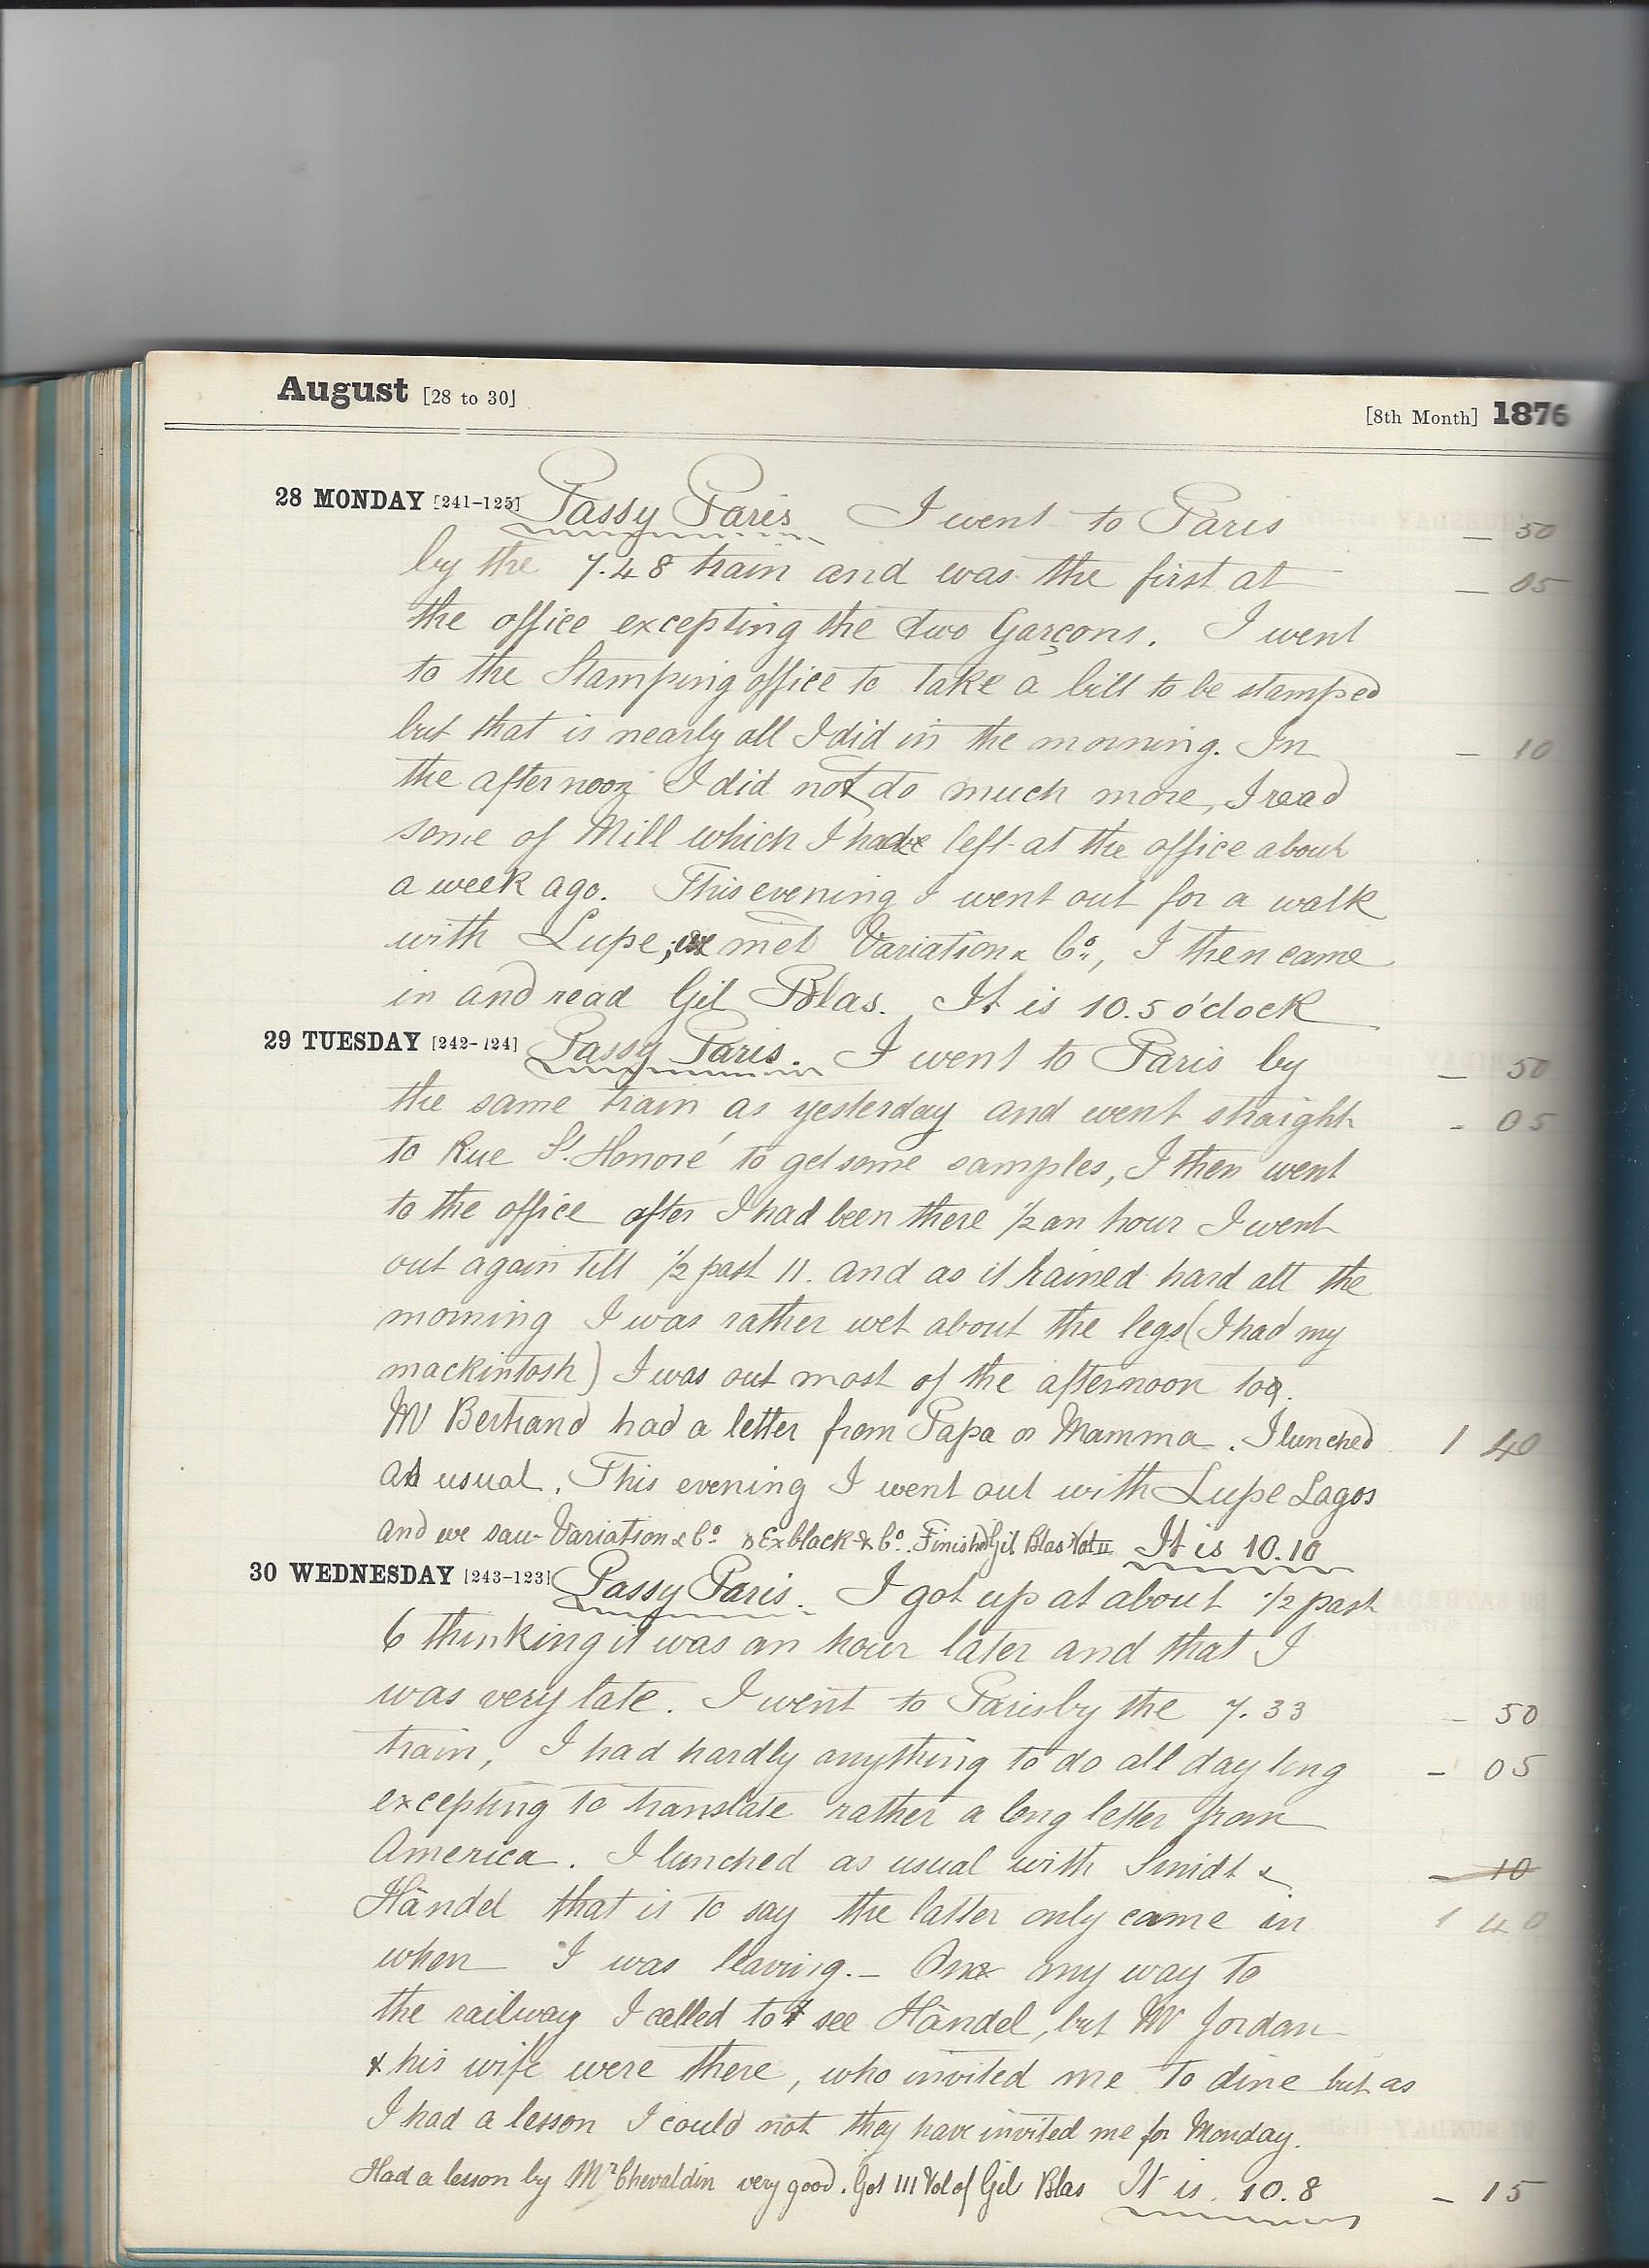 August [28 to 30] [8th Month] 1876
28 MONDAY [241-125] Passy Paris I went to Paris — 50
by the 7.48 train and was the first at — 05
the office excepting the two Garçons. I went
to the Stamping office to take a bill to be stamped
but that is nearly all I did in the morning. In — 10
the afternoon I did not do much more, I read
some of Mill which I had left at the office about
a week ago. This evening I went out for a walk
with Lupe, met Variation & Co., I then came
in and read Gil Blas. It is 10.5 o'clock
29 TUESDAY [242-124] Passy Paris. I went to Paris by — 50
the same train as yesterday and went straight - 05
to Rue St. Honoré to get some samples, I then went
to the office after I had been there ½ an hour I went
out again till ½ past 11. and as it rained hard all the
morning I was rather wet about the legs (I had my
mackintosh) I was out most of the afternoon too.
Mr Bertrand had a letter from Papa or Mamma. I lunched 1 40
as usual. This evening I went out with Lupe Lagos
and we saw Variation & Co. & Exblack & Co. Finished Gil Blas Vol II It is 10.10
30 WEDNESDAY [243-123] Passy Paris. I got up at about ½ past
6 thinking it was an hour later and that I
was very late. I went to Paris by the 7.33 — 50
train, I had hardly anything to do all day long - 05
excepting to translate rather a long letter from
America. I lunched as usual with Smidt & — 10
Händel that is to say the latter only came in 1 40
when I was leaving. — On my way to
the railway I called to see Händel, but Mr Jordan
& his wife were there, who invited me to dine but as
I had a lesson I could not they have invited me for Monday.
Had a lesson by Mr Chevaldin very good. Got III Vol of Gil Blas It is 10.8 — 15